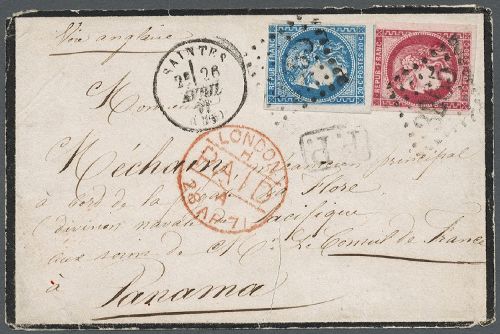 Voie anglaise
SAINTES
26
AVRIL
71
REPUB FRANC
20 C POSTES 20 C
REPUB FRANC
Monsieur
Méchain principal
à bord de la Flore
(division navale Pacifique
aux soins de Mr. Le Consul de France
à Panama
LONDON
H
PAID
28 AP 71
P.P.